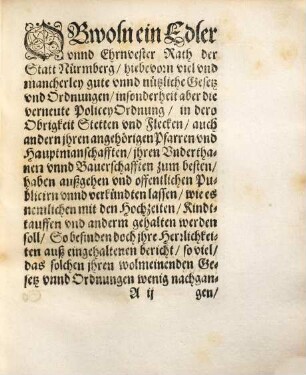 OBwoln ein Edler
vnnd Ehrnvester Rath der
Statt Nürmberg/ hiebevorn viel vnd
mancherley gute vnnd nützliche Gesetz
vnd Ordnungen/ insonderheit aber die
verneute Policey Ordnung/ in dero
Obrigkeit Stetten vnd Flecken/ auch
andern jhren angehörigen Pfarren vnd
Hauptmanschafften/ jhren Vnderthanen
vnnd Bauerschafften zum besten/
haben außgehen vnd offentlichen Publicirn
vnnd verkündten lassen/ wie es
nemlichen mit den Hochzeiten/ Kindttauffen
vnd anderm gehalten werden
soll/ So befinden doch jhre Herrlichkeiten
auß eingehaltenen bericht/ so viel/
das solchen jhren wolmeinenden Gesetz
vnnd Ordnungen wenig nachgan-
A ij gen/